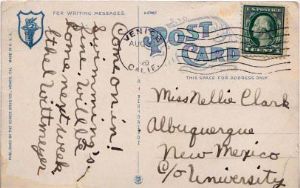 FOR WRITING MESSAGES
POST
CARD
THIS SPACE FOR ADDRESS ONLY
VENICE
AUG
CALIF.
Come on in!
Swimming's
fine. Will be
home next week.
Ethel Wittmeyer
Miss Nellie Clark
Albuquerque
New Mexico
c/o University